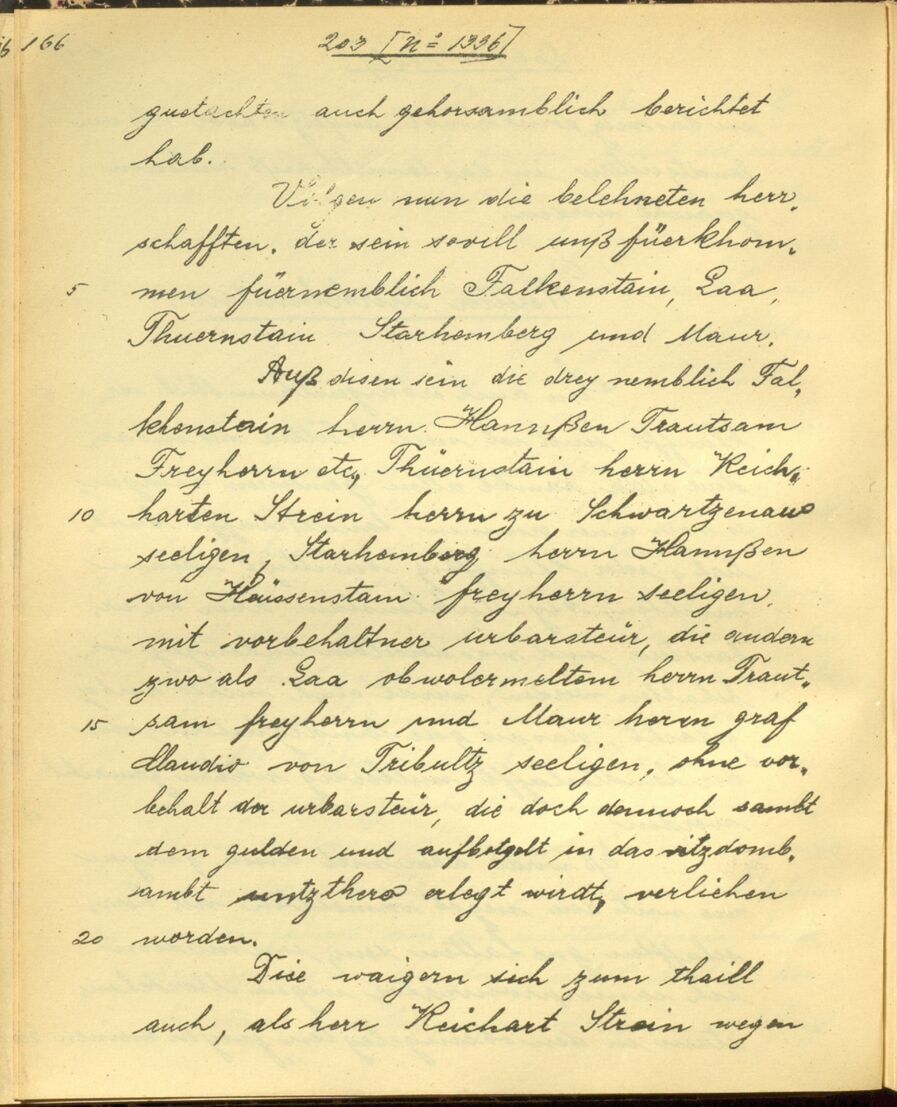 166
203 [Nº 1336]
guetachten auch gehorsamblich berichtet
hab.
Volgen nun die belehneten herr,
schafften, der sein sovill unß füerkhom,
5 men füernemblich Falkenstain, Laa,
Thuernstain Starhemberg und Maur.
Auß disen sein die drey nemblich Fal,
khenstain herrn Hannßen Trautsam
Freyherrn etc., Thüernstain herrn Reich,
10 harten Strein herrn zu Schwartzenau
seeligen, Starhemberg herrn Hannßen
von Heüssenstam freyherrn seeligen,
mit vorbehaltner urbarsteür, die andern
zwo als Laa obwolermeltem herrn Traut,
15 sam freyherrn und Maur herrn graf
Claudio von Tribultz seeligen, ohne vor,
behalt der urbarsteür, die doch dennoch sambt
dem gulden und aufbotgelt in das vitzdomb,
ambt untzthero erlegt wirdt, verlichen
20 worden.
Dise waigern sich zum thaill
auch, als herr Reichart Strein wegen